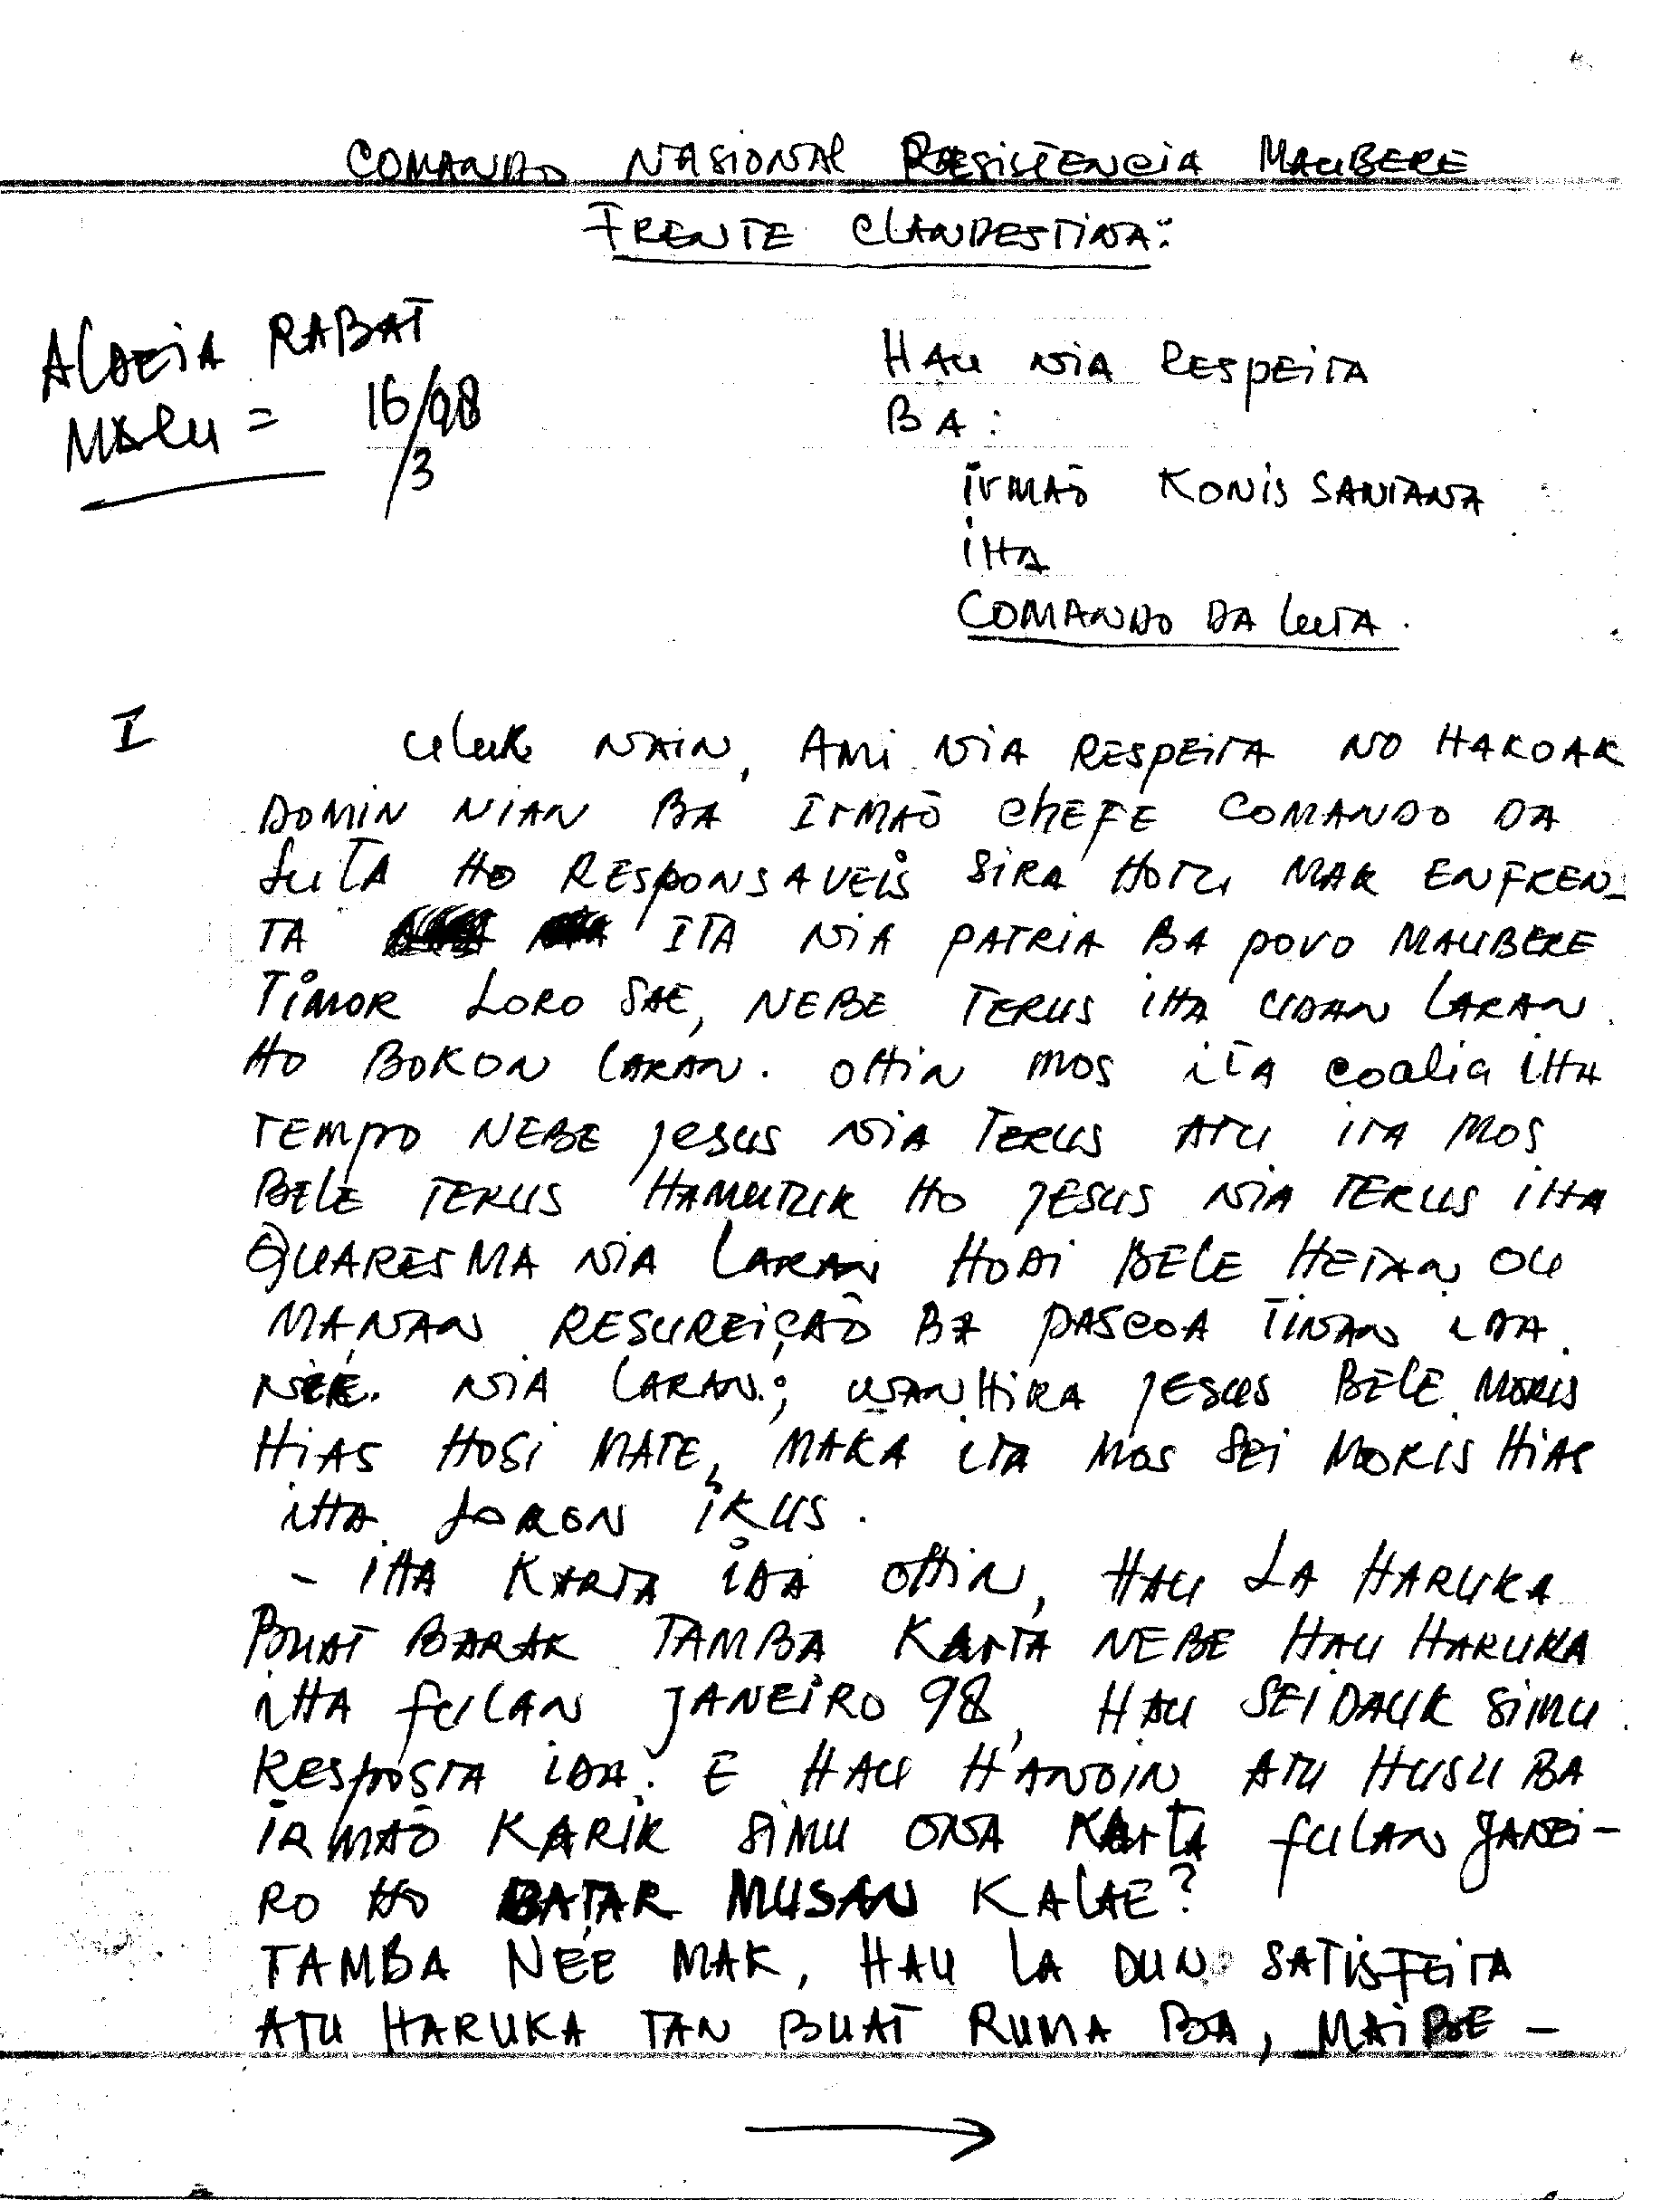 COMANDO NASIONAL RESISTENCIA MAUBERE
FRENTE CLANDESTINA:
ALDEIA RABAT
= 16/3/98
HAU NIA RESPEITA
BA:
IRMAÕ KONIS SANTANA
IHA
COMANDO DA LUTA.
I ULUK NAIN, AMI NIA RESPEITA NO HAKOAK
DOMIN NIAN BA IRMAÕ CHEFE COMANDO DA
LUTA HO RESPONSAVEIS SIRA HOTU MAK ENFREN-
TA ITA NIA PATRIA BA POVO MAUBERE
TIMOR LORO SAE, NEBE TERUS IHA UDAN LARAN
HO BOKON LARAN. OHIN MOS ITA COALIA IHA
TEMPO NEBE JESUS NIA TERUS ATU ITA MOS
BELE TERUS HAMUTUK HO JESUS NIA TERUS IHA
QUARESMA NIA LARAN HODI BELE HETAN OU
MANAN RESUREIÇAÕ BA PASCOA TINAN IDA
NEE. NIA LARAN; WANHIRA JESUS BELE MORIS
HIAS HOSI MATE, MAKA ITA MOS SEI MORIS HIAS
IHA LORON IKUS.
- IHA KARTA IDA OHIN, HAU LA HARUKA
BUAT BARAK TAMBA KARTA NEBE HAU HARUKA
IHA FULAN JANEIRO 98, HAU SEIDAUK SIMU
RESPOSTA IDA. E HAU HANOIN ATU HUSU BA
IRMAÕ KARIK SIMU ONA KARTA FULAN JANEI-
RO HO BATAR MUSAN KALAE?
TAMBA NEE MAK, HAU LA DUN SATISFEITA
ATU HARUKA TAN BUAT RUMA BA, MAIBE -
→